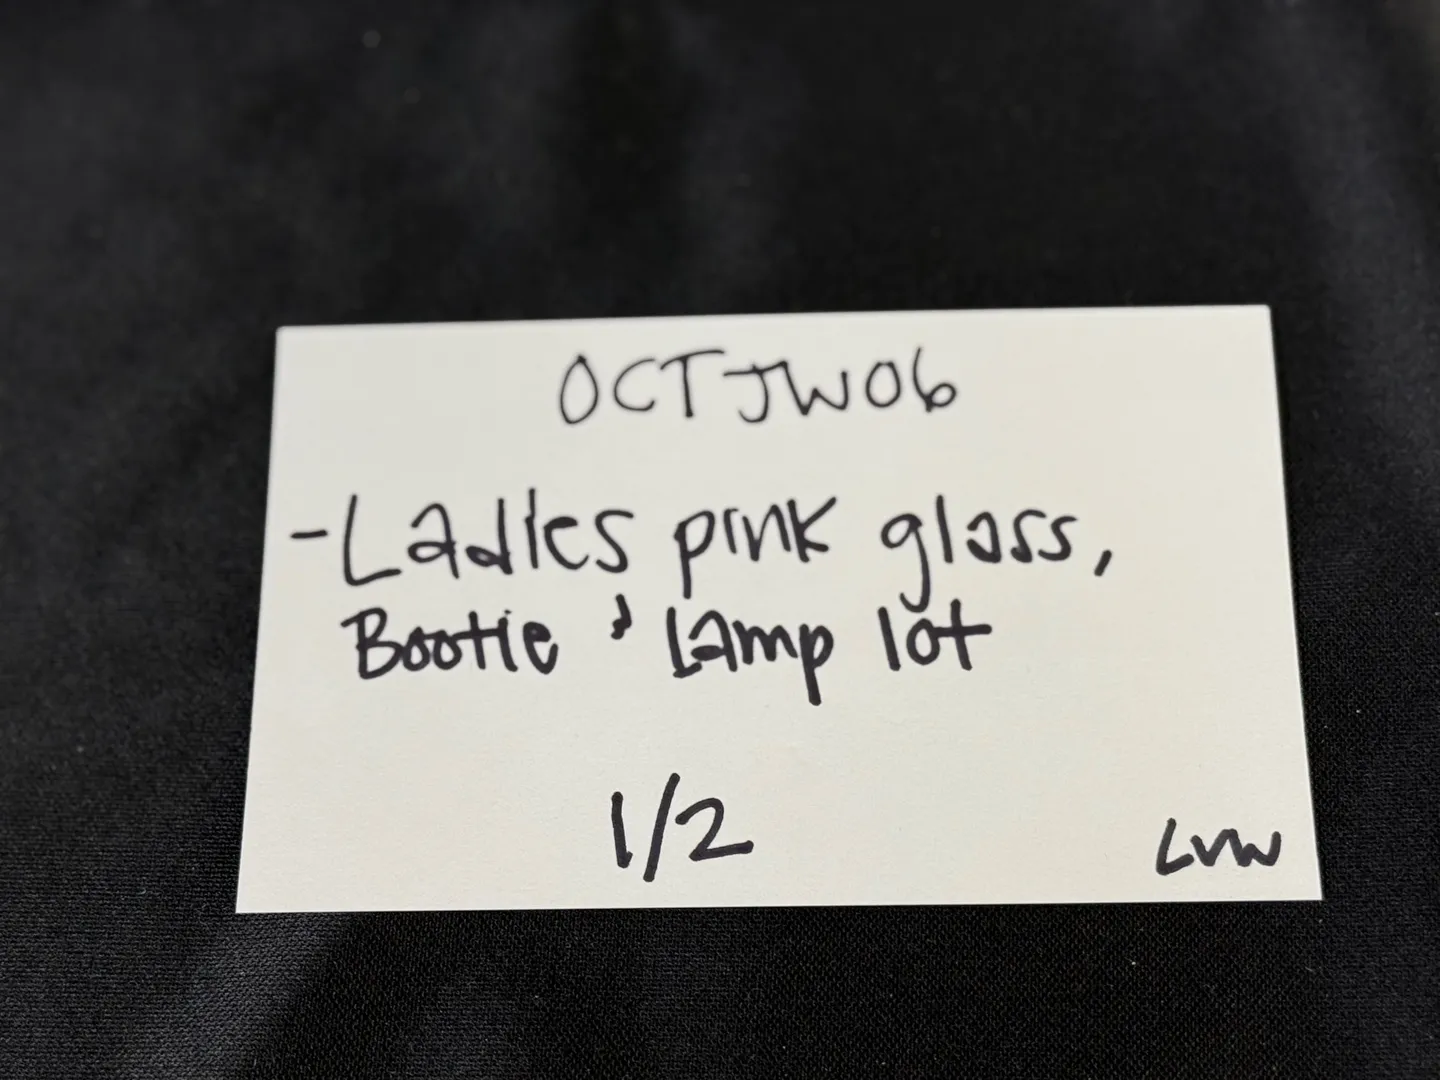 OCTJW06
-Ladies pink glass,
Bootie & Lamp lot
1/2
LVW